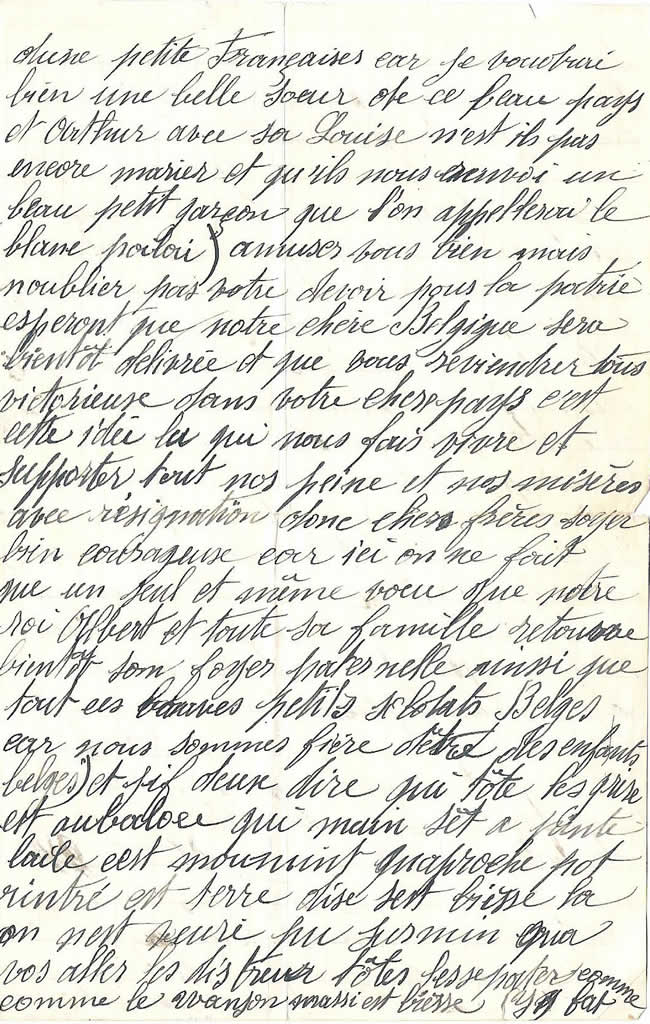 d'une petite Françaises car je voudrai
bien une belle soeur de ce beau pays
et Arthur avec sa Louise n'est ils pas
encore marier et qu'ils nous envoi un
beau petit garçon que l'on appellerai le
blanc poilou) amuser vous bien mais
noublier pas votre devoir pour la patrie
esperont que notre chère Belgique sera
bientôt delivrée et que vous reviendrer tous
victorieuse dans votre cher pays c'est
cette idée la qui nous fais vivre et
supporter tout nos peine et nos misères
avec résignation donc chers frères soyer
bin courageuse car ici on ne fait
que un seul et même voeu que notre
roi Albert et toute sa famille retourne
bientôt som foyer paternelle ainssi que
tout ces braves petits soldats Belges
car nous sommes fière dêtre des enfants
belges) et dire qui tôte les
est qui main sèt a
laile cest mounint pot
rintré est terre dise sest biesse la
on nest pu qua
vos aller les tôtes comme
comme le est biesse fat